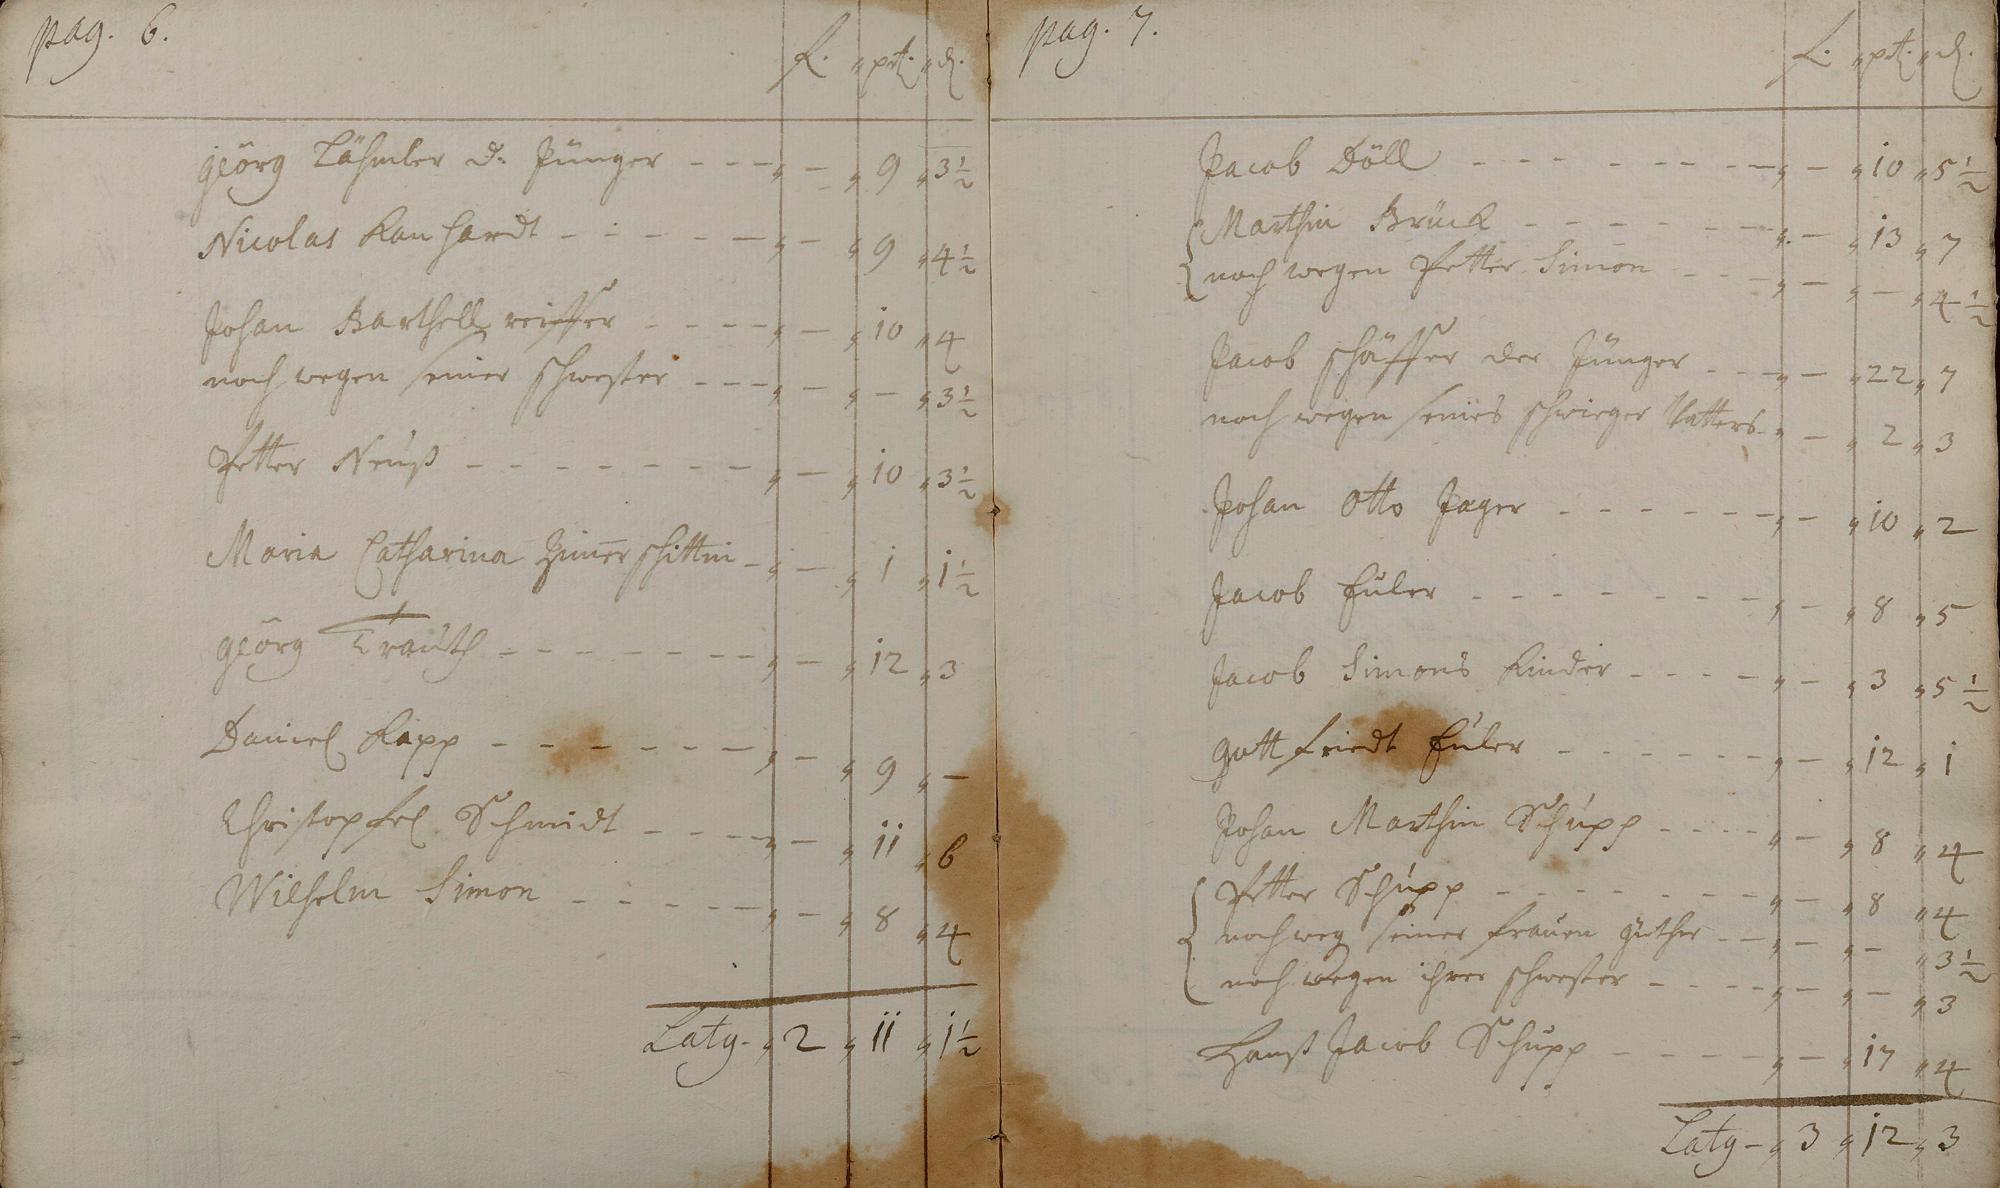 pag. 6.
f. " pt. " d.
Georg Lähmler d. Jünger - - - " - " 9 " 3½
Nicolas Kanhardt - - - - - " - " 9 " 4½
Johan Barthell reiffer - - - - " - " 10 " 4
noch wegen seiner schwester - - - - " - " - " 3½
Petter Neuß - - - - - - - " - " 10 " 3½
Maria Catharina Zim̄erschittin - " - " 1 " 1½
Georg Trauth - - - - - - - " - " 12 " 3
Daniel Kapp - - - - - - - " - " 9 " -
Christopfel Schmidt - - - - " - " 11 " 6
Wilhelm Simon - - - - - " - " 8 " 4
Laty - " 2 " 11 " 1½
pag. 7.
f. " pt. " d.
Jacob Döll - - - - - - - - " - " 10 " 5½
Marthin Brück - - - - - - " - " 13 " 7
noch wegen Petter Simon - - - " - " - " 4½
Jacob schäffer der Jünger - - - " - " 22 " 7
noch wegen seines schwieger Vatters - " - " 2 " 3
Johan Otto Jager - - - - - - " - " 10 " 2
Jacob Euler - - - - - - - - " - " 8 " 5
Jacob Simons Kinder - - - - " - " 3 " 5½
Gottfriedt Euler - - - - - - " - " 12 " 1
Johan Marthin Schupp - - - - " - " 8 " 4
Petter Schupp - - - - - - - " - " 8 " 4
noch weg seiner frauen güther - - " - " - " 3½
noch wegen ihrer schwester - - - - " - " - " 3
Hanß Jacob Schupp - - - - - " - " 17 " 4
Laty - " 3 " 12 " 3